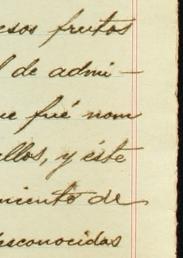 esos frutos
l de admi-
ue fué nom
ellos, y éste
miento de
desconocidas